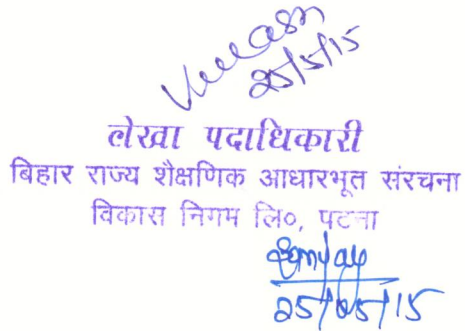 25/5/15
लेखा पदाधिकारी
बिहार राज्य शैक्षणिक आधारभूत संरचना
विकास निगम लि०, पटना
25/05/15